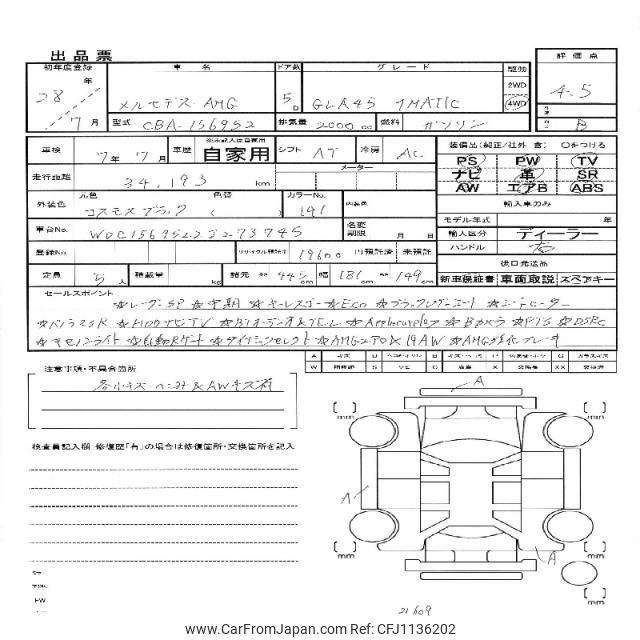 出品票
初年度登録 車名 ドア数 グレード 駆動 評価点
28年 メルセデス AMG 5D GLA45 4MATIC 2WD 4WD 4.5
7月 型式 CBA-156952 排気量 2000cc 燃料 ガソリン B
車検 7年 7月 車歴 自家用 シフト AT 冷房 AC 装備品(純正/社外 含)○をつける
PS PW TV
走行距離 34,193 km メーター ナビ 革 SR
AW エアB ABS
外装色 元色 コスモスブラック 色替 ( ) カラーNo. 191 内装色 輸入車のみ
モデル年式 年
車台No. WDC1569522J273745 名変期限 月 日 輸入区分 ディーラー
登録No. リサイクル預託金 19600 円預託済 未預託 ハンドル 右
後日発送品
定員 5人 積載量 kg 諸元 長 445cm 幅 181cm 高 149cm 新車保証書 車両取説 スペアキー
セールスポイント
☆レーダーSP ☆キーレスゴー ☆Eco ☆シートヒーター
☆パノラミSR ☆HDDナビTV ☆Applecarplay ☆Bカメラ ☆PTS ☆DSRC
☆キセノンライト ☆自動Rゲート ☆ダイナミックセレクト ☆AMG ☆AMG強化ブレーキ
注意事項・不具合箇所
各小キズ ヘコミ&AWキズ有
検査員記入欄 修復歴「有」の場合は修復箇所・交換箇所を記入
A
mm mm
A
A
mm mm
mm
21609
www.CarFromJapan.com Ref:CFJ1136202